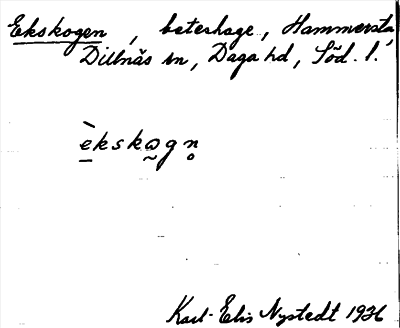 Ekskogen, beteshage, Hammersta,
Dillnäs sn, Daga hd, Söd. l.
è̱kskⱺ̰gn̥
Karl-Elis Nystedt 1936